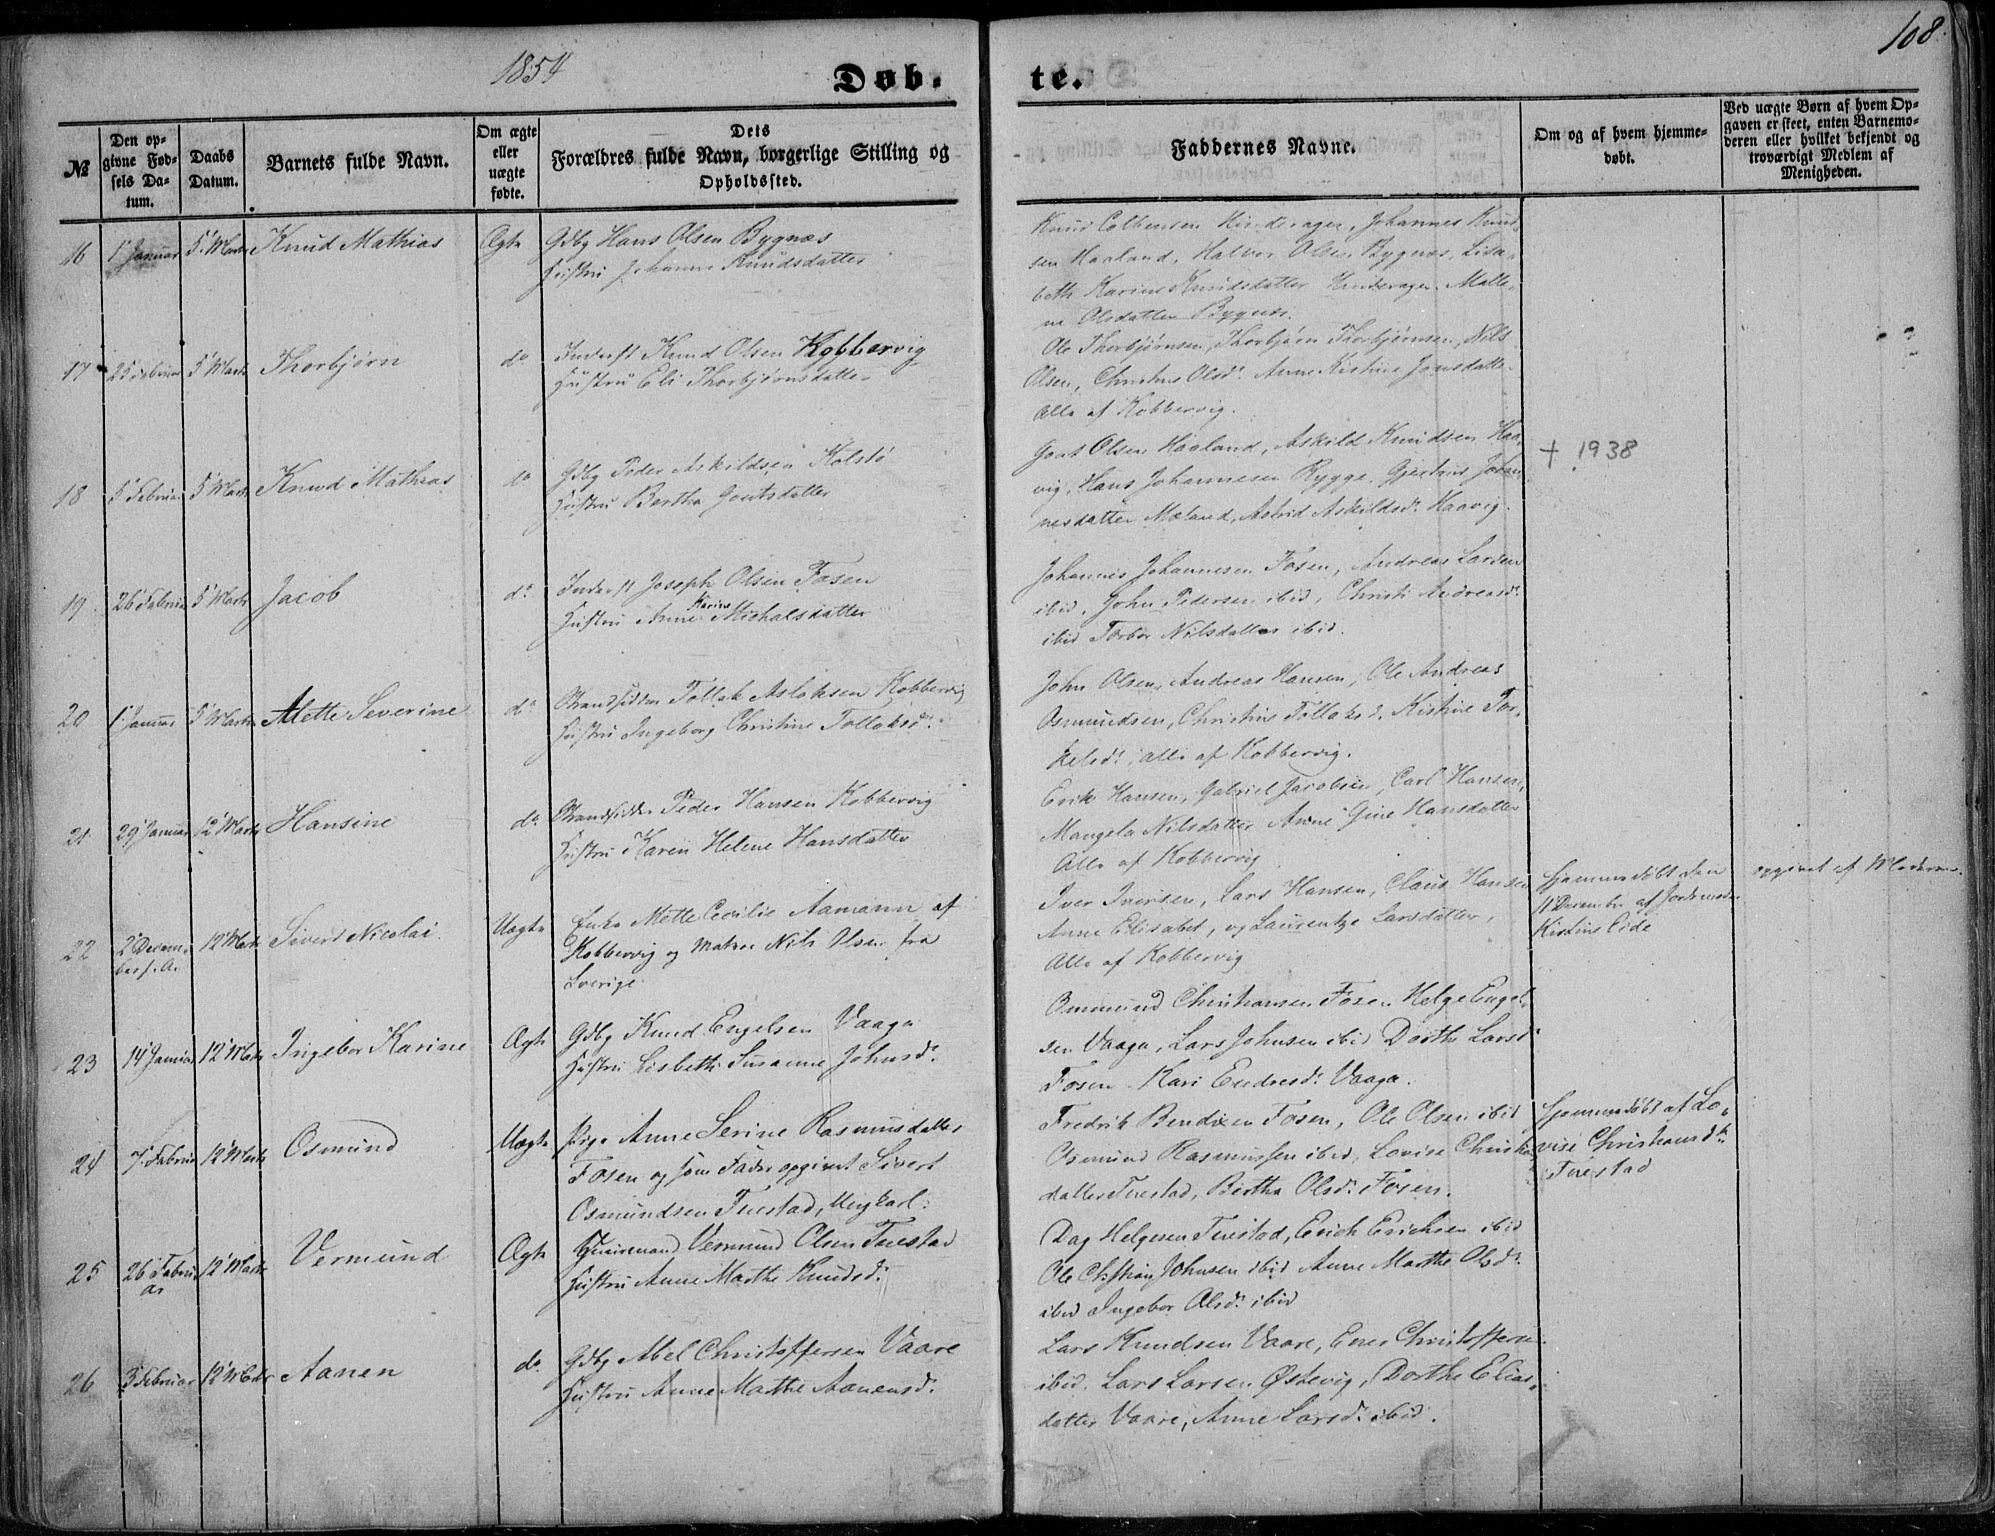 1854
108
Døb-
te.
№
Den op-
givne Fød-
sels Da-
tum.
Daabs
Datum.
Barnets fulde Navn.
Om ægte
eller
uægte
fødte.
Dets
Forældres fulde Navn, borgerlige Stilling og
Opholdssted.
Faddernes Navne.
Om og af hvem hjemme-
døbt.
Ved uægte Børn af hvem Op-
gaven er skeet, enten Barnemo-
deren eller hvilket bekjendt og
troværdigt Medlem af
Menigheden.
16 1 Januar 5 Marts Knud Mathias Ægte Gdbg Hans Olsen Bygnæs
Hustru Johanne Knudsdatter
Johannes Knud-
sen Haaland, Halvor Olsen Bygnes, Lisa-
beth Karine Knudsdatter Malle-
ne Olsdatter Bygnes.
17 25 Februar 5 Marts Thorbjørn do Inderst Knud Olsen Kobbervig
Hustru Eli Thorbjørnsdatter
Ole Thorbjørnsen, Thorbjørn Thorbjørnsen, Nils
Olsen, Christine Olsd. Anne Kistine Jonsdatter
Alle af Kobbervig.
18 5 Februar 5 Marts Knud Mathias do Gdbg Peder Askildsen Kolstø
Hustru Bertha Goutsdatter
Gout Olsen Haaland, Askild Knudsen Haa-
vig, Hans Johannesen Rygge, Gjertrud Johan-
nesdatter Mæland, Astrid Askildsd. Haavig.
+ 1938
19 26 Februar 5 Marts Jacob do Inderst Joseph Olsen Fosen
Hustru Anne Karine Michalsdatter
Johannes Johannesen Fosen, Andreas Larsen
ibid, John Pedersen ibid, Christi Andreasd.
ibid Torbor Nilsdatter ibid.
20 1 Januar 5 Marts Mette Severine do Strandsidder Tollak Aslaksen Kobbervig
Hustru Ingeborg Christine Tollaksd.
John Olsen, Andreas Hansen, Ole Andreas
Osmundsen, Christine Tollaksd. Kistine Tor-
kelsd. alle af Kobbervig.
21 29 Januar 12 Marts Hansine do Strandsidder Peder Hansen Kobbervig
Hustru Karen Helene Hansdatter
Erik Hansen, Gabriel Jacobsen, Carl Hansen,
Mangela Nilsdatter Anne Gine Hansdatter
Alle af Kobbervig
22 2 Decem-
ber f. A. 12 Marts Sivert Nicolai Uægte Enke Mette Cecilie Aamann af
Kobbervig og Matros Nils Olsen fra
Sverige
Iver Iversen, Lars Hansen, Claus Hansen
Anne Elisabet, og Laurentze Larsdatter,
Alle af Kobbervig
Hjemmedøbt den
11 December af Jordemoder
Kistine Eide
opgivet af Moderen.
23 14 Januar 12 Marts Ingebor Karine Ægte Gdbg Knud Engelsen Vaage
Hustru Lisbeth Susanne Johnsd.
Ommund Christiansen Fosen Helge Engel-
sen Vaage, Lars Johnsen ibid Dorthe Larsd
Fosen Kari Endresd. Vaage.
24 7 Februar 12 Marts Osmund Uægte Pige Anne Serine Rasmusdatter
Fosen og som Fader opgivet Sivert
Osmundsen Tuestad, Ungkarl.
Fredrik Bendixen Fosen, Ole Olsen ibid
Osmund Rasmussen ibid, Lovise Christians
datter Tuestad, Bertha Olsd. Fosen.
Hjemmedøbt af Lo-
vise Christiansd.
Tuestad
25 26 Febru
ar 12 Marts Vermund Ægte Huusmand Vermund Olsen Tuestad
Hustru Anne Marthe Knudsd.
Dag Helgesen Tuestad, Erich Erichsen ibid
Ole Christian Johnsen ibid Anne Marthe Olsd.
ibid Ingebor Olsd. ibid
26 3 Februar 12 Marts Aanen do Gdbg Abel Christoffersen Vaare
Hustru Anne Marthe Aanensd.
Lars Knudsen Vaare, Ener Christoffersen
ibid. Lars Larsen Østevig, Dorthe Elias-
datter Vaare, Anne Larsd. ibid.